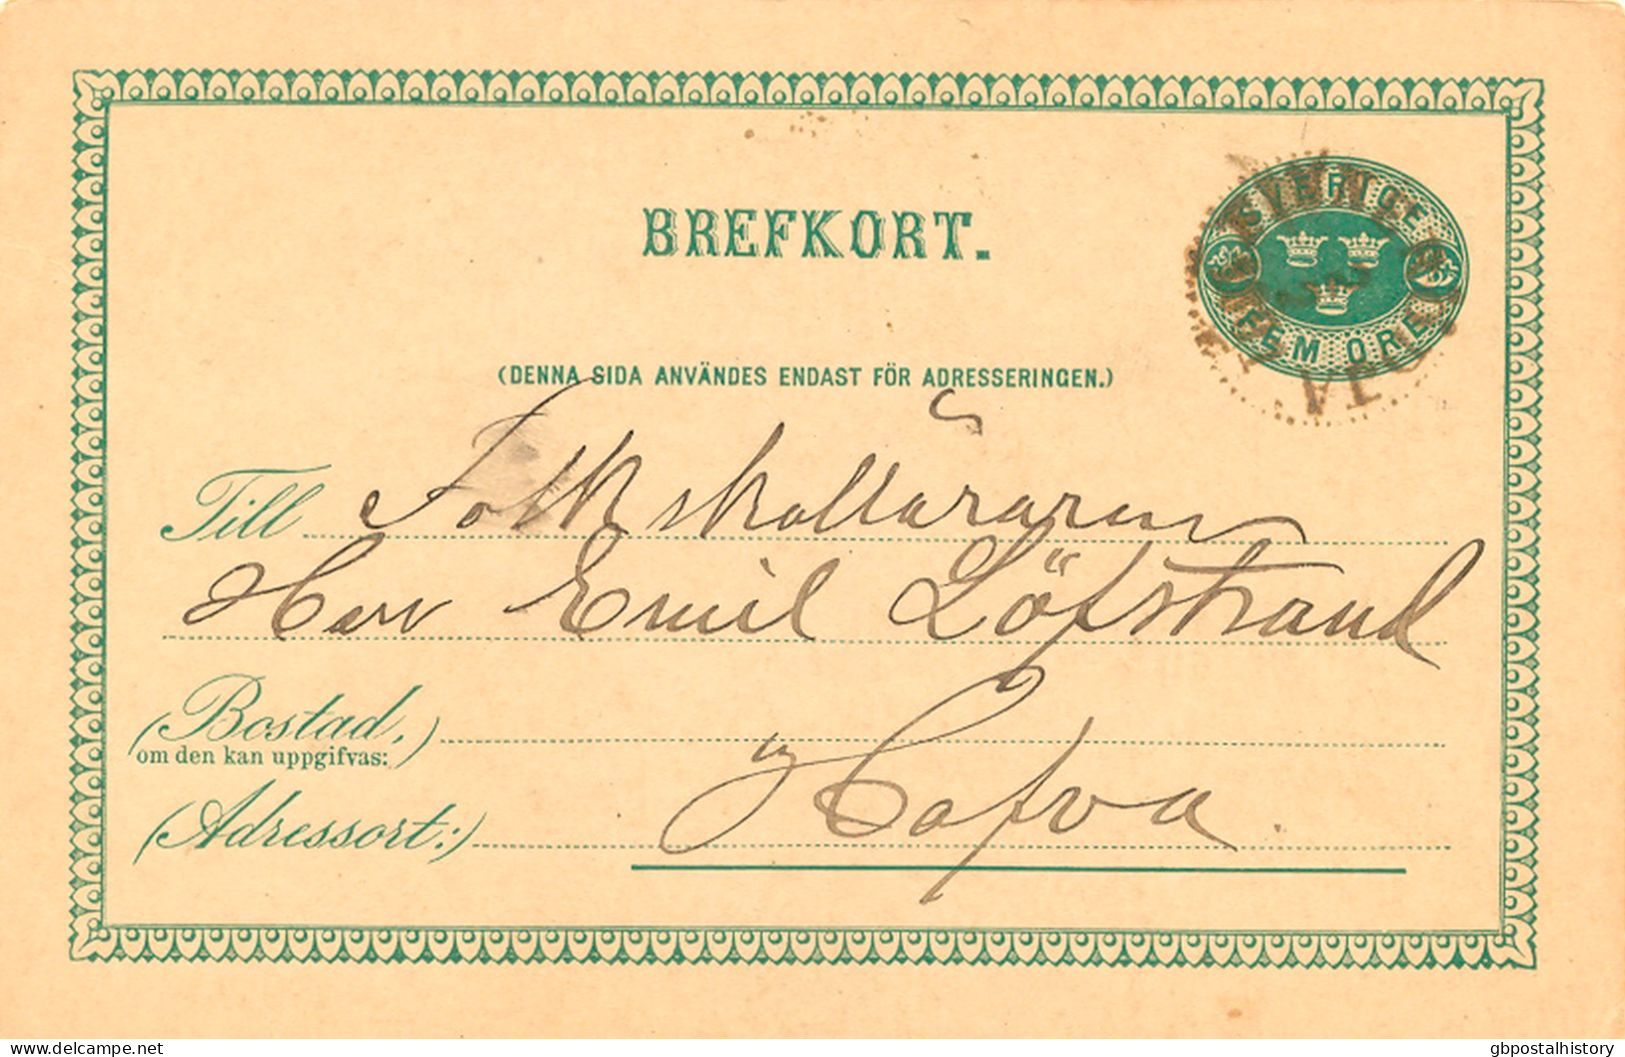 BREFKORT.
SVERIGE
FEM ÖRE
(DENNA SIDA ANVÄNDES ENDAST FÖR ADRESSERINGEN.)
Till Folkskolläraren
Herr Emil Löfstrand
(Bostad,)
om den kan uppgifvas:
(Adressort:) Hofva.
www.delcampe.net
gbpostalhistory